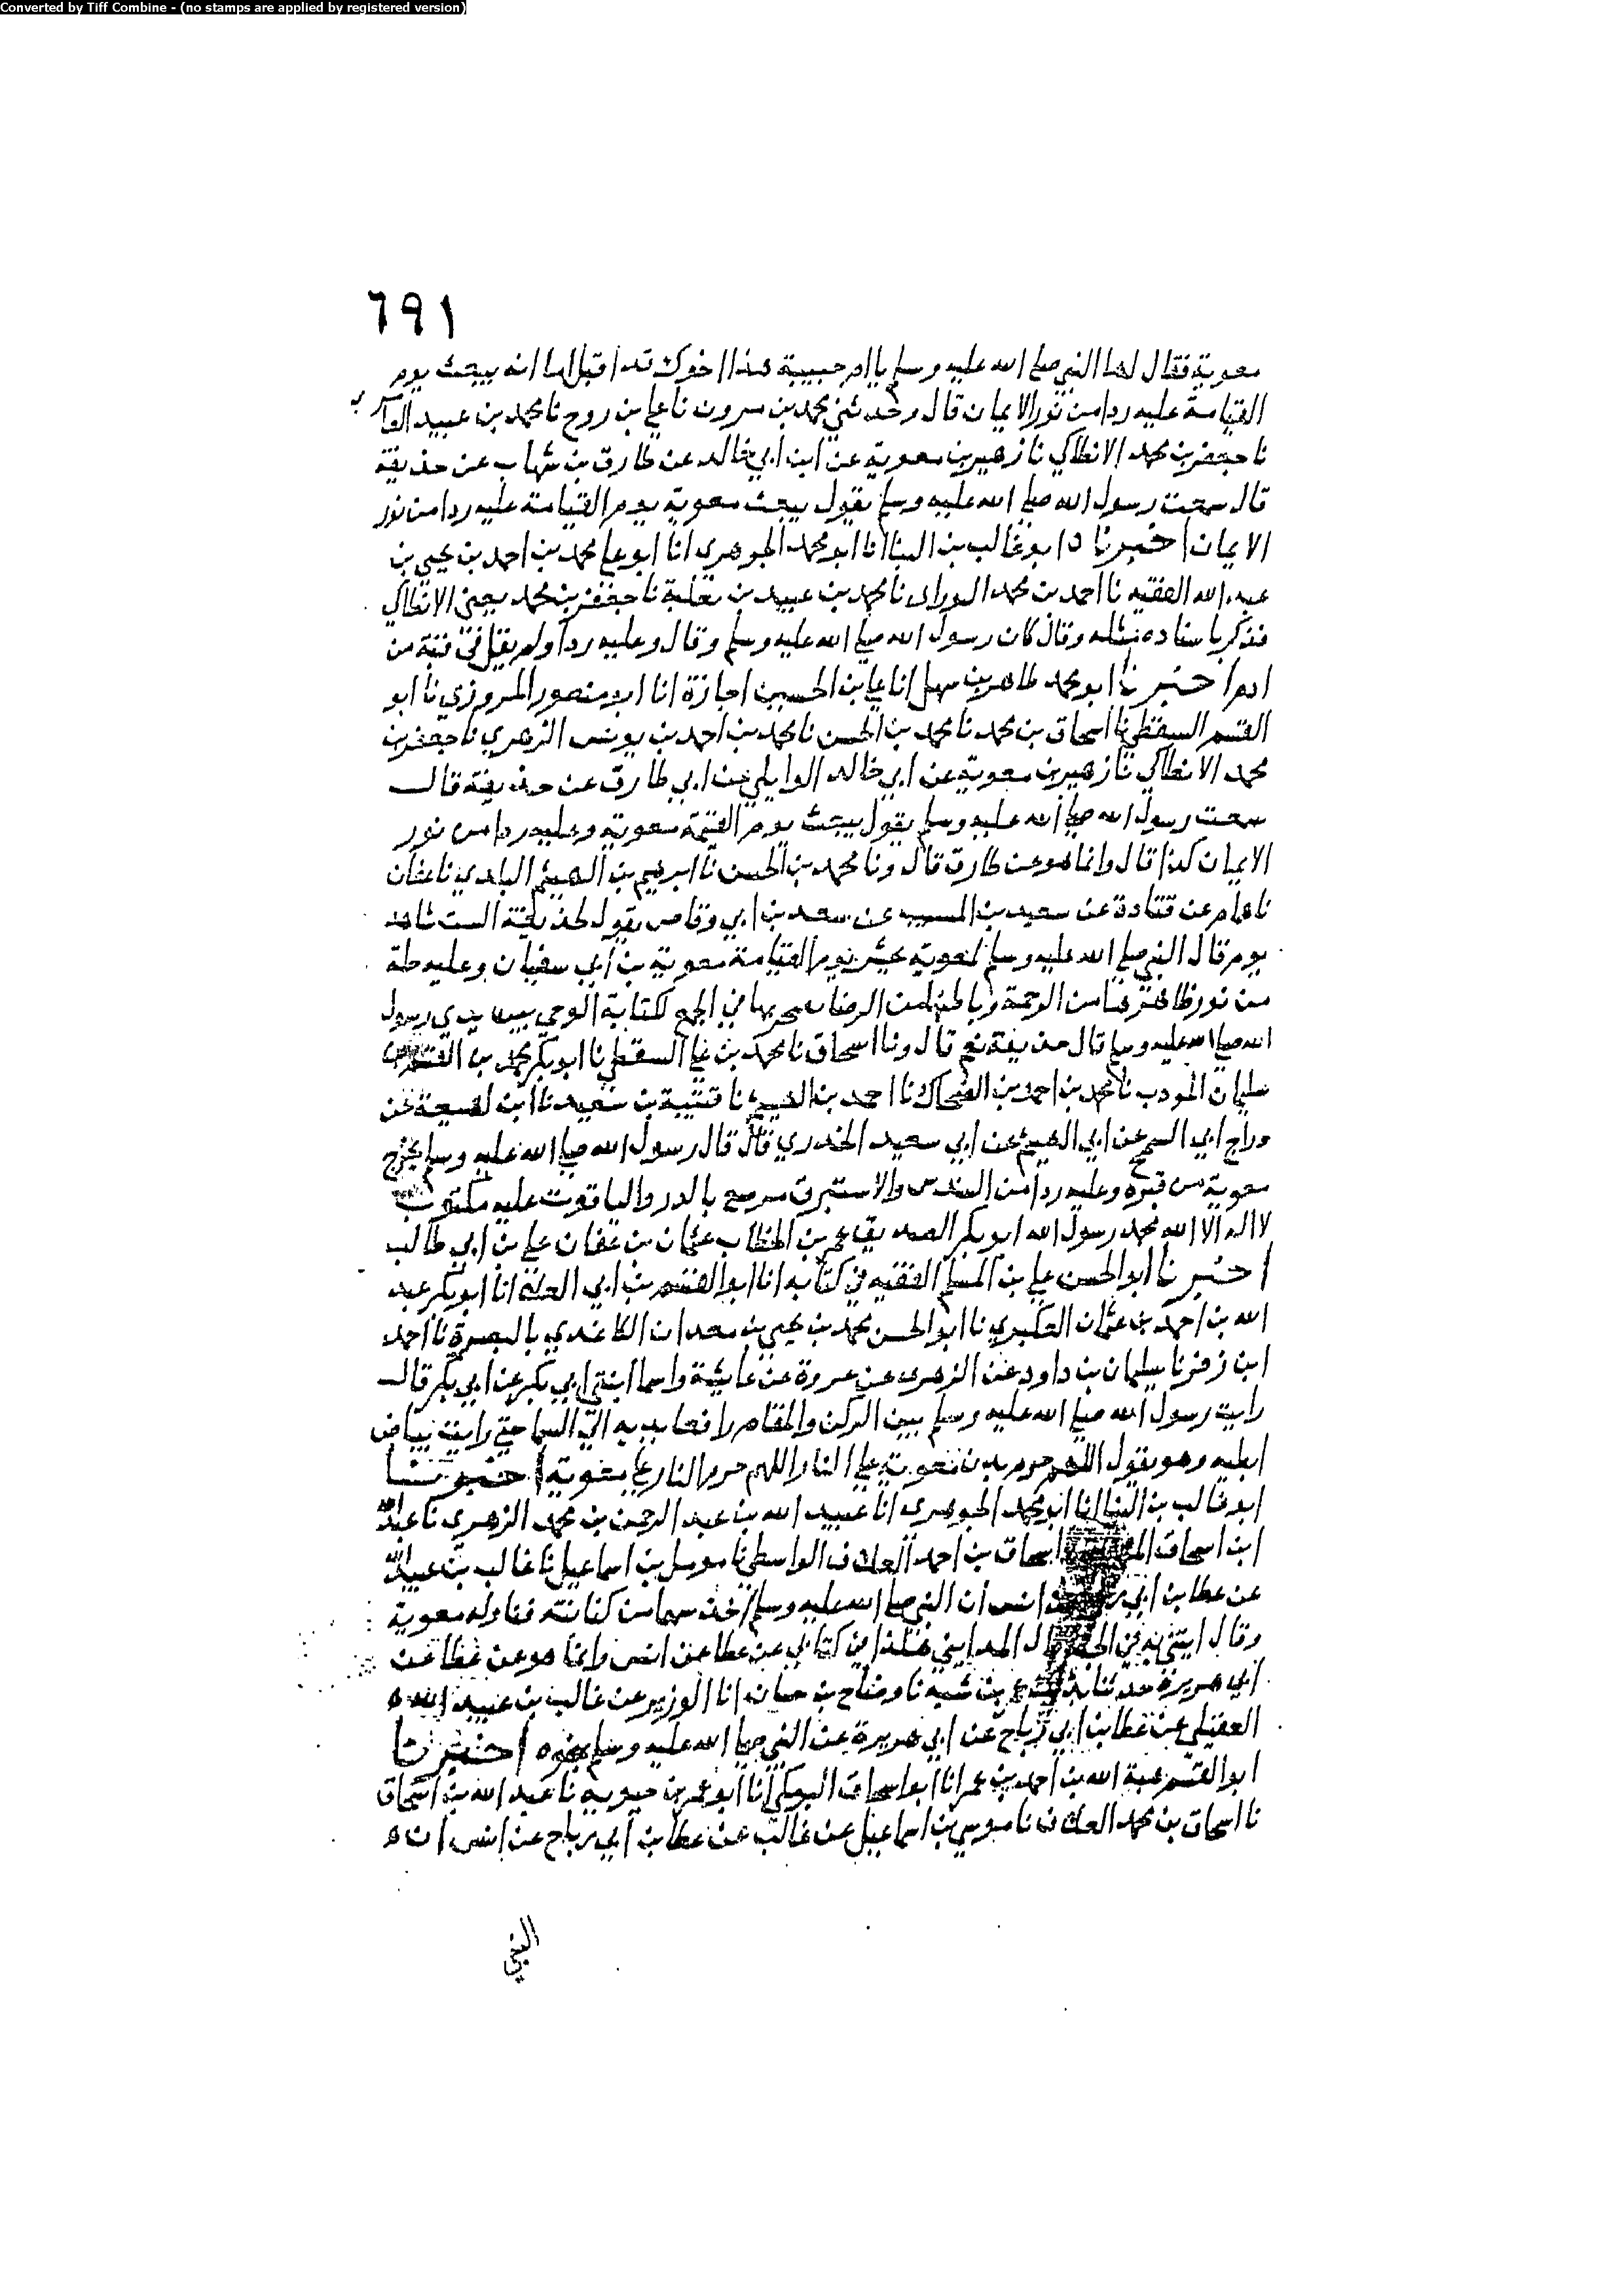 Converted by Tiff Combine - (no stamps are applied by registered version)
٦٩١
معوية فقال لها النبي صلى الله عليه وسلم يا ام حبيبة هذا اخوك قد اقبل اما انه يبعث يوم
القيامة عليه ردا من نور الايمان قال وحدثني محمد بن نا علي بن روح نا محمد بن عبيد
نا جعفر بن محمد الانطاكي نا زهير بن معوية عن ابن ابي خالد عن طارق بن شهاب عن حذيفة
قال سمعت رسول الله صلى الله عليه وسلم يقول يبعث معوية يوم القيامة عليه ردا من نور
الايمان اخبرناه ابو غالب بن البنا انا ابو محمد الجوهري انا ابو علي محمد بن احمد بن يحيى بن
عبد الله الفقيه نا احمد بن محمد نا محمد بن عبيد بن ثعلبة نا جعفر بن محمد يعني الانطاكي
فذكر باسناده مثله وقال كان رسول الله صلى الله عليه وسلم وقال وعليه ردا ولم يقل من
ابو محمد طاهر بن سهل انا علي بن الحسين اجازة انا ابو منصور المروزي نا ابو
القسم السقطي نا اسحاق بن محمد نا محمد بن الحسن نا محمد بن احمد بن يونس الزهري نا جعفر بن
محمد الانطاكي نا زهير بن معوية عن ابي خالد الوايلي عن ابي طارق عن حذيفة قال
سمعت رسول الله صلى الله عليه وسلم يقول يبعث يوم القيمة معوية وعليه ردا من نور
الايمان كذا قال وانما هو عن طارق قال ونا محمد بن الحسن نا ابرهيم بن الهيثم البلدي نا عفان
نا همام عن قتادة عن سعيد بن المسيب عن سعد بن ابي وقاص يقول لحذيفة الست شاهد
يوم قال النبي صلى الله عليه وسلم لمعوية يحشر يوم القيامة معوية بن ابي سفيان وعليه حلة
من نور ظاهرها من الرحمة وباطنها من الرضا في الجمع لكتابة الوحي بين يدي رسول
الله صلى الله عليه وسلم قال حذيفة نعم قال ونا اسحاق نا محمد بن علي السقطي نا ابو بكر محمد بن
سليمان المودب نا محمد بن احمد بن الضحاك نا احمد بن الهيثم نا قتيبة بن سعيد نا ابن لهيعة عن
دراج ابي السمح عن ابي الهيثم عن ابي سعيد الخدري قال قال رسول الله صلى الله عليه وسلم يخرج
معوية من قبره وعليه ردا من السندس والاستبرق مرصع بالدر والياقوت عليه مكتوب
لا اله الا الله محمد رسول الله ابو بكر الصديق عمر بن الخطاب عثمان بن عفان علي بن ابي طالب
اخبرنا ابو الحسن علي بن المسلم الفقيه في كتابه انا ابو القسم بن ابي العلا انا ابو بكر عبد
الله بن احمد بن عثمان العكبري نا ابو الحسن محمد بن يحيى بن سعدان الكاغدي بالبصرة نا احمد
ابن زفر نا سليمان بن داود عن الزهري عن عروة عن عايشة واسما ابنتي ابي بكر عن ابي بكر قال
رايت رسول الله صلى الله عليه وسلم بين الركن والمقام رافعا يديه الى السما حتى رايت بياض
ابطيه وهو يقول اللهم حرم بدن معوية على النار اللهم حرم النار على معوية اخبرنا
ابو غالب بن البنا انا ابو محمد الجوهري انا عبيد الله بن عبد الرحمن بن محمد الزهري نا عبد الله
ابن اسحاق اسحاق بن احمد العلاف الواسطي نا موسى بن اسماعيل نا غالب بن عبيد الله
عن عطا بن ابي انس ان النبي صلى الله عليه وسلم اخذ سهما من كنانته فناوله معوية
وقال ايتني به في قال المدايني هكذا في كتابي عن عطا عن انس وانما هو عن عطا عن
ابي هريرة حدثنا به بن شبه نا وضاح بن حسان انا الوزير عن غالب بن عبيد الله
العقيلي عن عطا بن ابي رباح عن ابي هريرة عن النبي صلى الله عليه وسلم بنحوه اخبرنا
ابو القسم هبة الله بن احمد بن عمر انا ابو اسحاق البرمكي انا ابو عمر بن حيويه نا عبد الله بن اسحاق
نا اسحاق بن محمد العلاف نا موسى بن اسماعيل عن غالب عن عطا بن ابي رباح عن انس ان
النبي